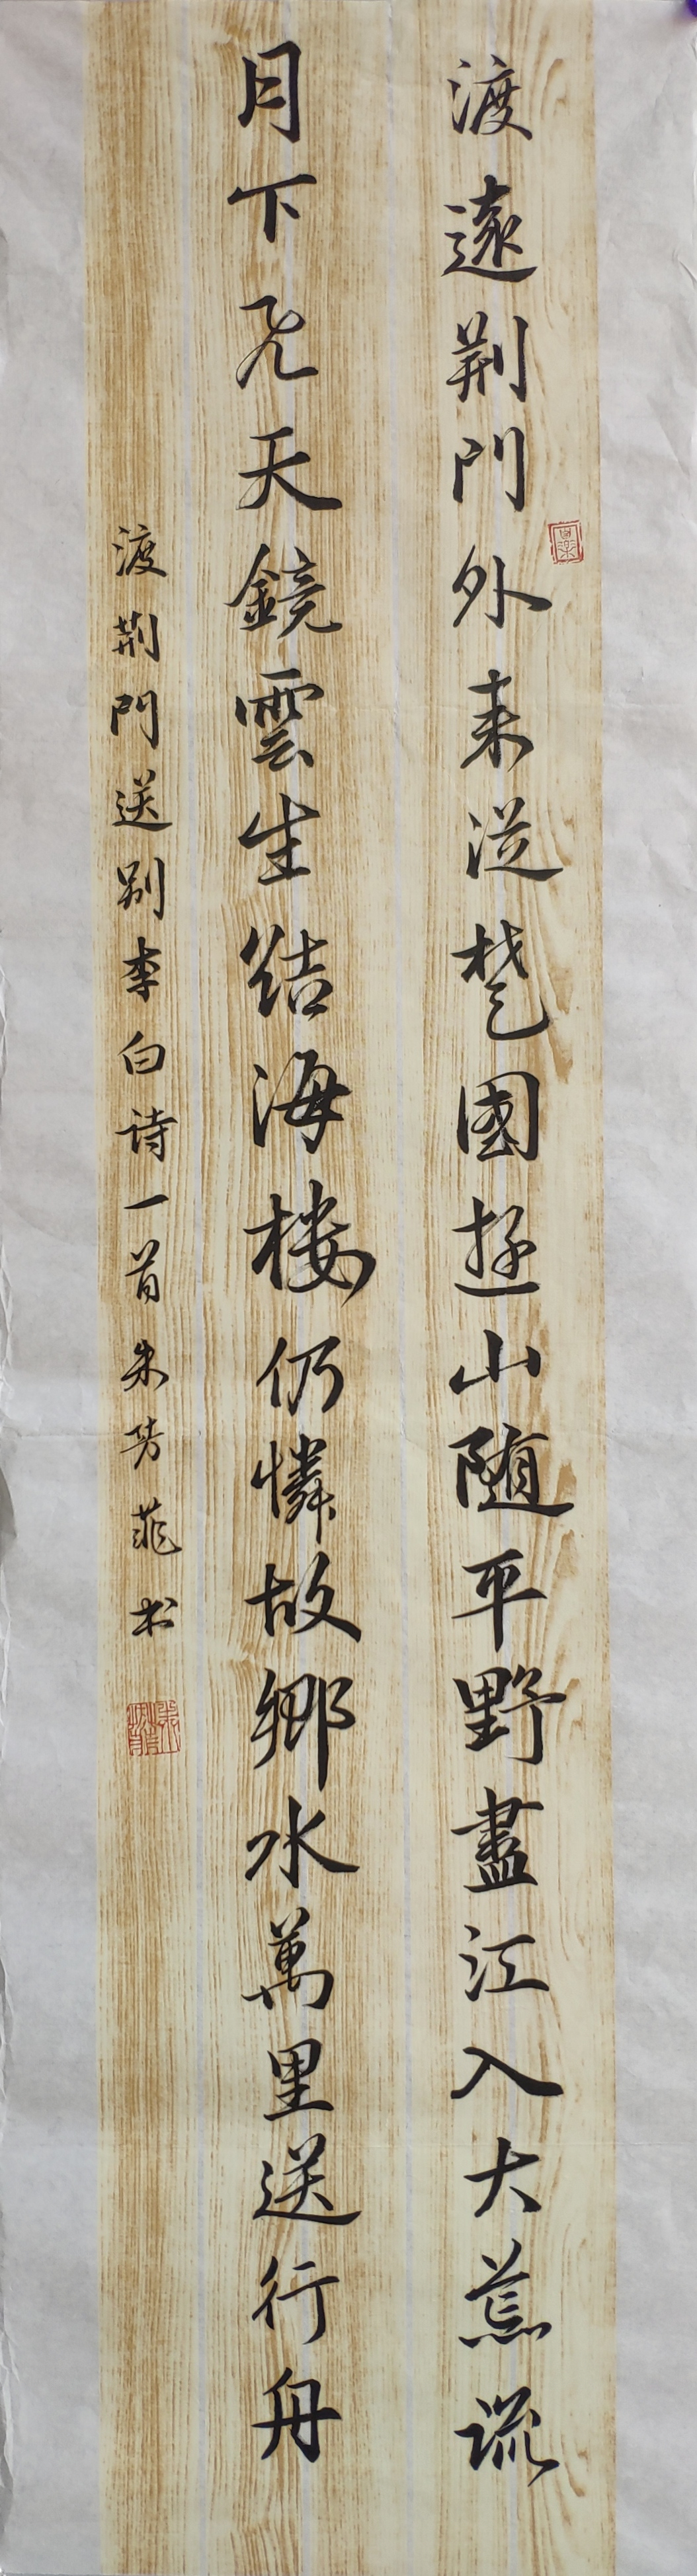 渡遠荆門外来從楚國遊山随平野盡江入大荒流
月下飞天鏡雲生结海楼仍憐故鄉水萬里送行舟
渡荆門送别李白诗一首朱芳菲书